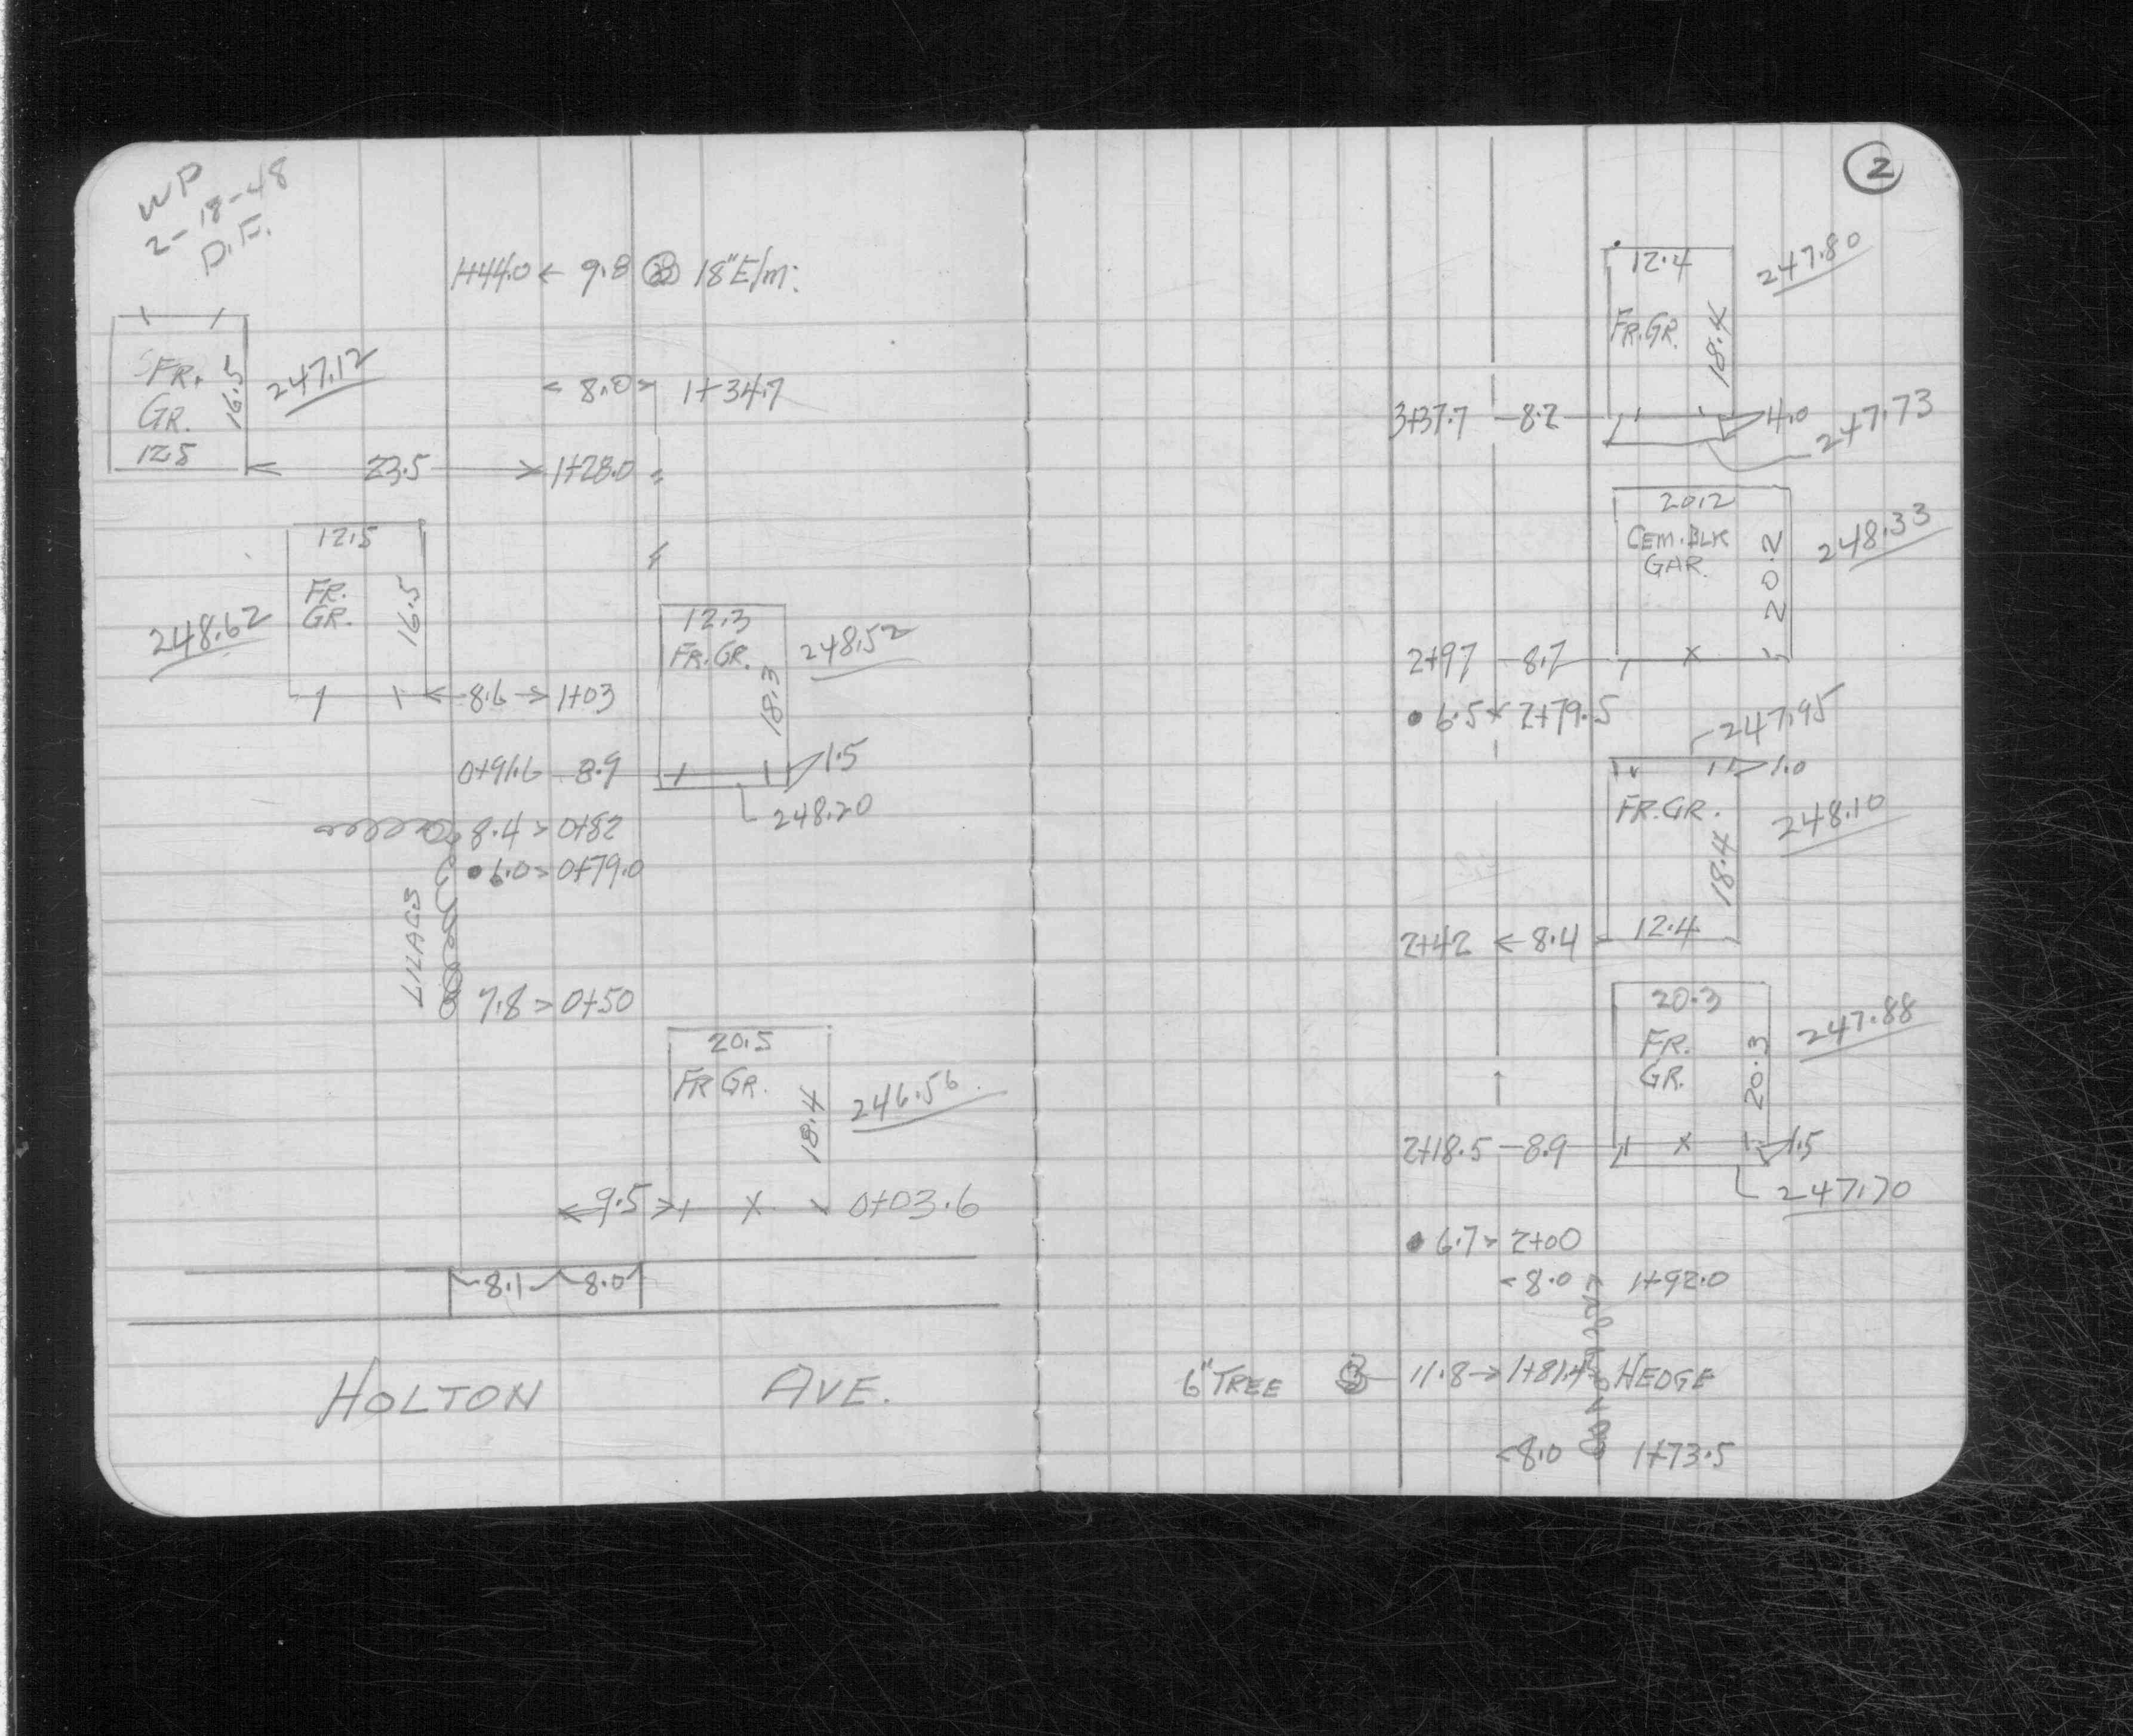 WP
2-18-48
D.F.
1+44.0 ← 9.8 18" Elm:
FR.
GR.
12.5
16.5
247.12
< 8.0 > 1+34.7
23.5 1+28.0
12.5
FR.
GR.
16.5
248.62
8.6 → 1+03
12.3
FR. GR.
18.3
248.52
0+91.6 8.9
1.5
248.20
8.4 > 0+82
6.0 > 0+79.0
LILACS
7.8 > 0+50
20.5
FR GR.
18.4
246.56
9.5 0+03.6
8.1 8.0
HOLTON AVE.
2
12.4
FR. GR.
18.4
247.80
3+37.7 8.2
4.0
247.73
20.2
CEM. BLK
GAR.
20.2
248.33
2+97 8.7
6.5 2+79.5
247.95
1.0
FR. GR.
18.4
248.10
12.4
2+42 ← 8.4
20.3
FR.
GR.
20.3
247.88
2+18.5 8.9
1.5
247.70
6.7 > 2+00
<8.0 1+92.0
6" TREE 11.8 → 1+81.4 HEDGE
<8.0 1+73.5